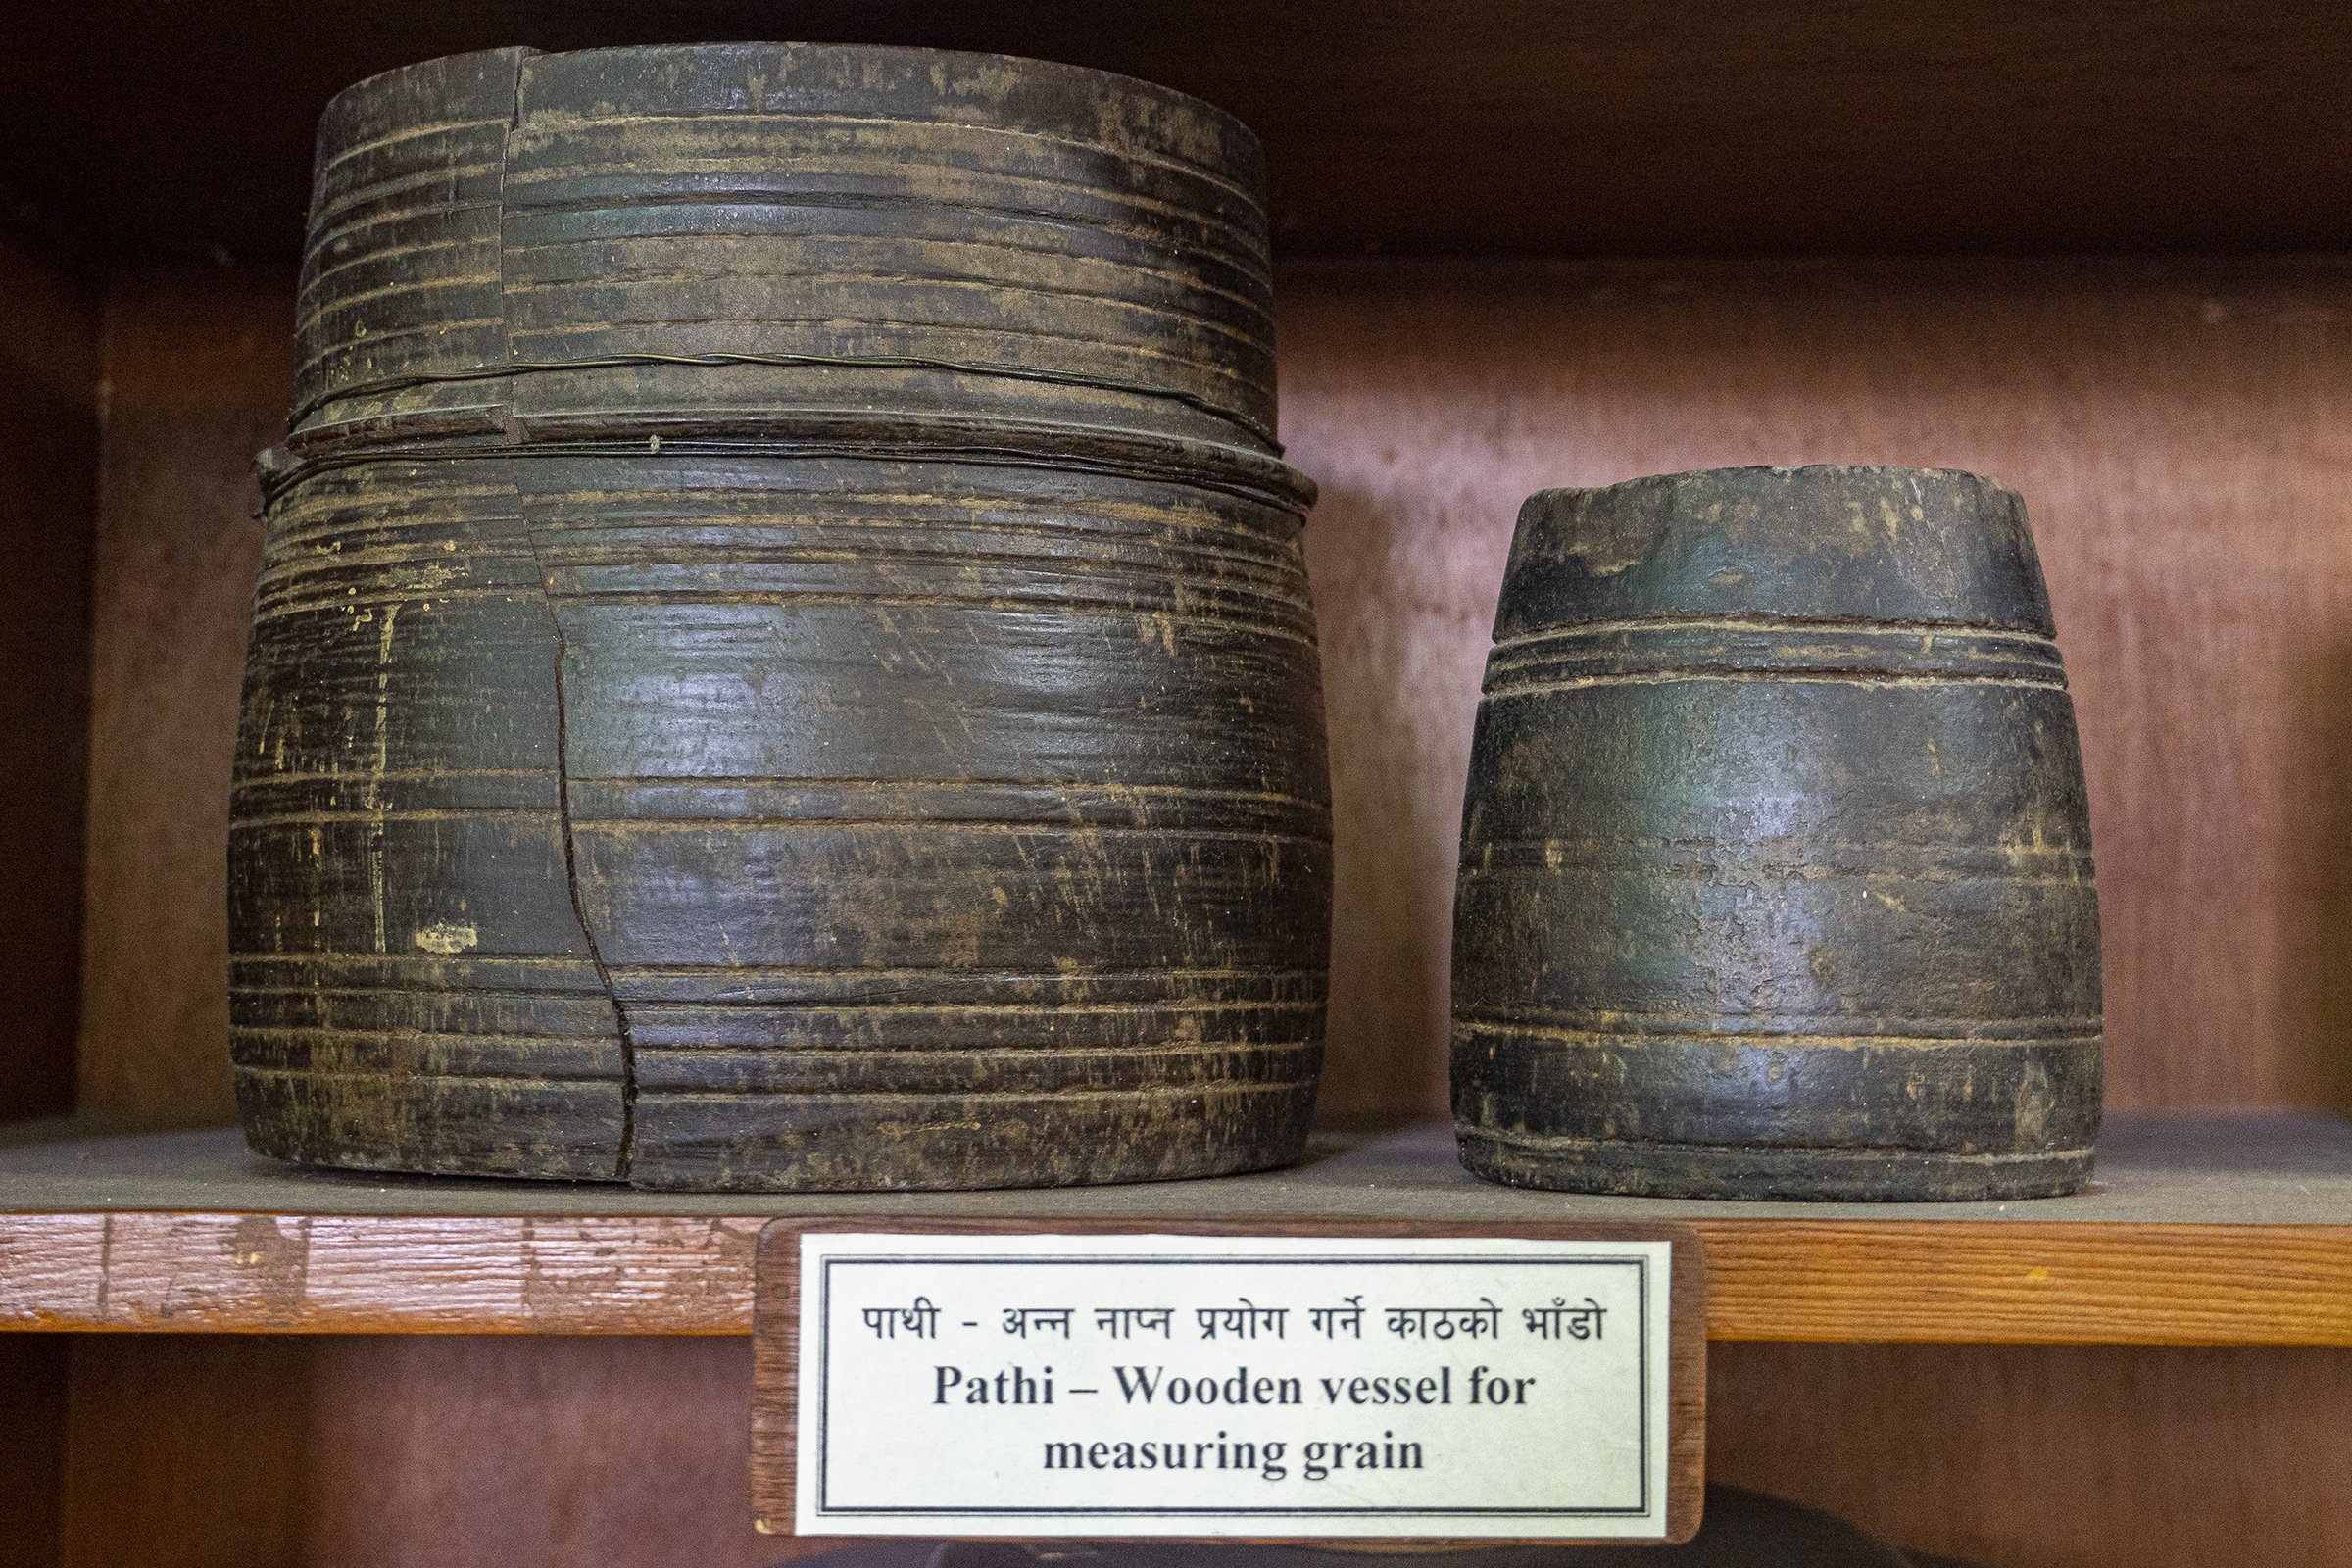 पाथी - अन्न नाप्न प्रयोग गर्ने काठको भाँडो
Pathi – Wooden vessel for
measuring grain